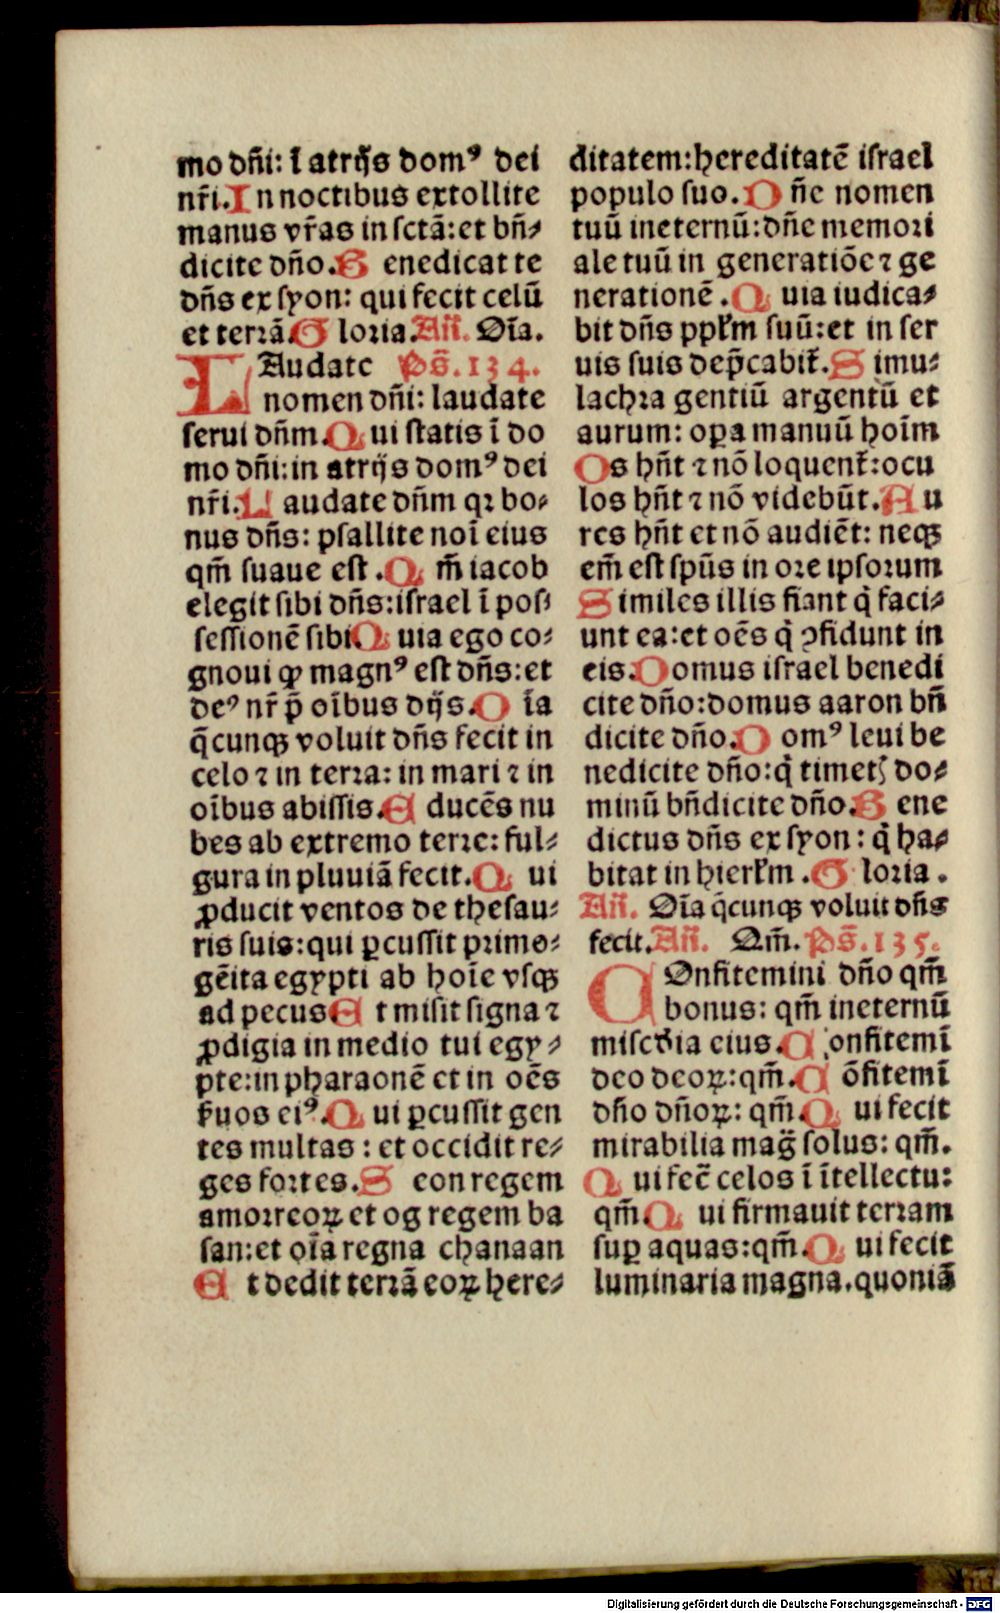 mo dñi: ĩ atrijs domꝰ dei
nr̃i. In noctibus extollite
manus vr̃as in sctã: et bñ⸗
dicite dño. Benedicat te
dñs ex syon: qui fecit celũ
et terrã. Gloria. Añ. Oĩa.
LAudate Ps̃. 134.
nomen dñi: laudate
serui dñm. Qui statis ĩ do
mo dñi: in atrijs domꝰ dei
nr̃i. Laudate dñm qꝛ bo⸗
nus dñs: psallite noĩ eius
qm̃ suaue est. Qm̃ iacob
elegit sibi dñs: israel ĩ pos⸗
sessionẽ sibi Quia ego co⸗
gnoui ꝙ magnꝰ est dñs: et
deꝰ nr̃ p̃ oĩbus dijs. Oĩa
q̃cunqꝫ voluit dñs fecit in
celo ⁊ in terra: in mari ⁊ in
oĩbus abissis. Educẽs nu
bes ab extremo terre: ful⸗
gura in pluuiã fecit. Qui
ꝓducit ventos de thesau⸗
ris suis: qui ꝑcussit primo⸗
gẽita egypti ab hoĩe vsqꝫ
ad pecus Et misit signa ⁊
ꝓdigia in medio tui egy⸗
pte: in pharaonẽ et in oẽs
ẜuos eiꝰ. Qui ꝑcussit gen
tes multas: et occidit re⸗
ges fortes. Seon regem
amorreoꝝ et og regem ba
san: et oĩa regna chanaan
Et dedit terrã eoꝝ here⸗
ditatem: hereditatẽ israel
populo suo. Dñe nomen
tuũ ineternũ: dñe memori
ale tuũ in generatiõe ⁊ ge
nerationẽ. Quia iudica⸗
bit dñs ppl̃m suũ: et in ser
uis suis dep̃cabit̃. Simu⸗
lachra gentiũ argentũ et
aurum: oꝑa manuũ hoĩm
Os hñt ⁊ nõ loquent̃: ocu
los hñt ⁊ nõ videbũt. Au
res hñt et nõ audiẽt: neqꝫ
em̃ est spũs in ore ipsorum
Similes illis fiant q̃ faci⸗
unt ea: et oẽs q̃ ꝯfidunt in
eis. Domus israel benedi
cite dño: domus aaron bñ
dicite dño. Domꝰ leui be
nedicite dño: q̃ timetꝭ do⸗
minũ bñdicite dño. Bene
dictus dñs ex syon: q̃ ha⸗
bitat in hierl̃m. Gloria.
Añ. Oĩa q̃cunqꝫ voluit dñs
fecit. Añ. Qm̃. Ps̃. 135.
COnfitemini dño qm̃
bonus: qm̃ ineternũ
miscd̃ia eius. Confitemĩ
deo deoꝝ: qm̃. Cõfitemĩ
dño dñoꝝ: qm̃. Qui fecit
mirabilia mag̃ solus: qm̃.
Qui fec̃ celos ĩ ĩtellectu:
qm̃. Qui firmauit terram
suꝑ aquas: qm̃. Qui fecit
luminaria magna. quoniã
Digitalisierung gefördert durch die Deutsche Forschungsgemeinschaft - DFG